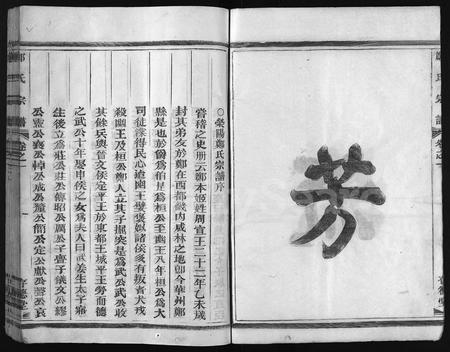 鄭氏宗譜
芳
○滎陽鄭氏宗譜序
嘗稽之史册云鄭本姬姓周宣王二十二年乙未歲
封其弟友於鄭在西都畿內咸林之地卽今華州鄭
縣是也於爵為伯是爲桓公至幽王八年桓公爲大
司徒深得民心追幽王嬖褒姒諸侯多有叛者犬戎
殺幽王及桓公鄭人立其子掘突是爲武公武公收
其餘兵與晉文侯定平王於東都王城平王勞而德
之武公十年娶申侯之女爲夫人曰武姜生太子寤
生後立爲莊公莊公傳昭公厲公子亹子儀文公繆
公靈公襄公悼公成公釐公簡公定公獻公聲公哀
鄭氏宗譜
卷之一
存德堂